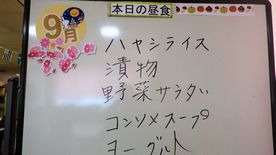 本日の昼食
9月
ハヤシライス
漬物
野菜サラダ
コンソメスープ
ヨーグルト